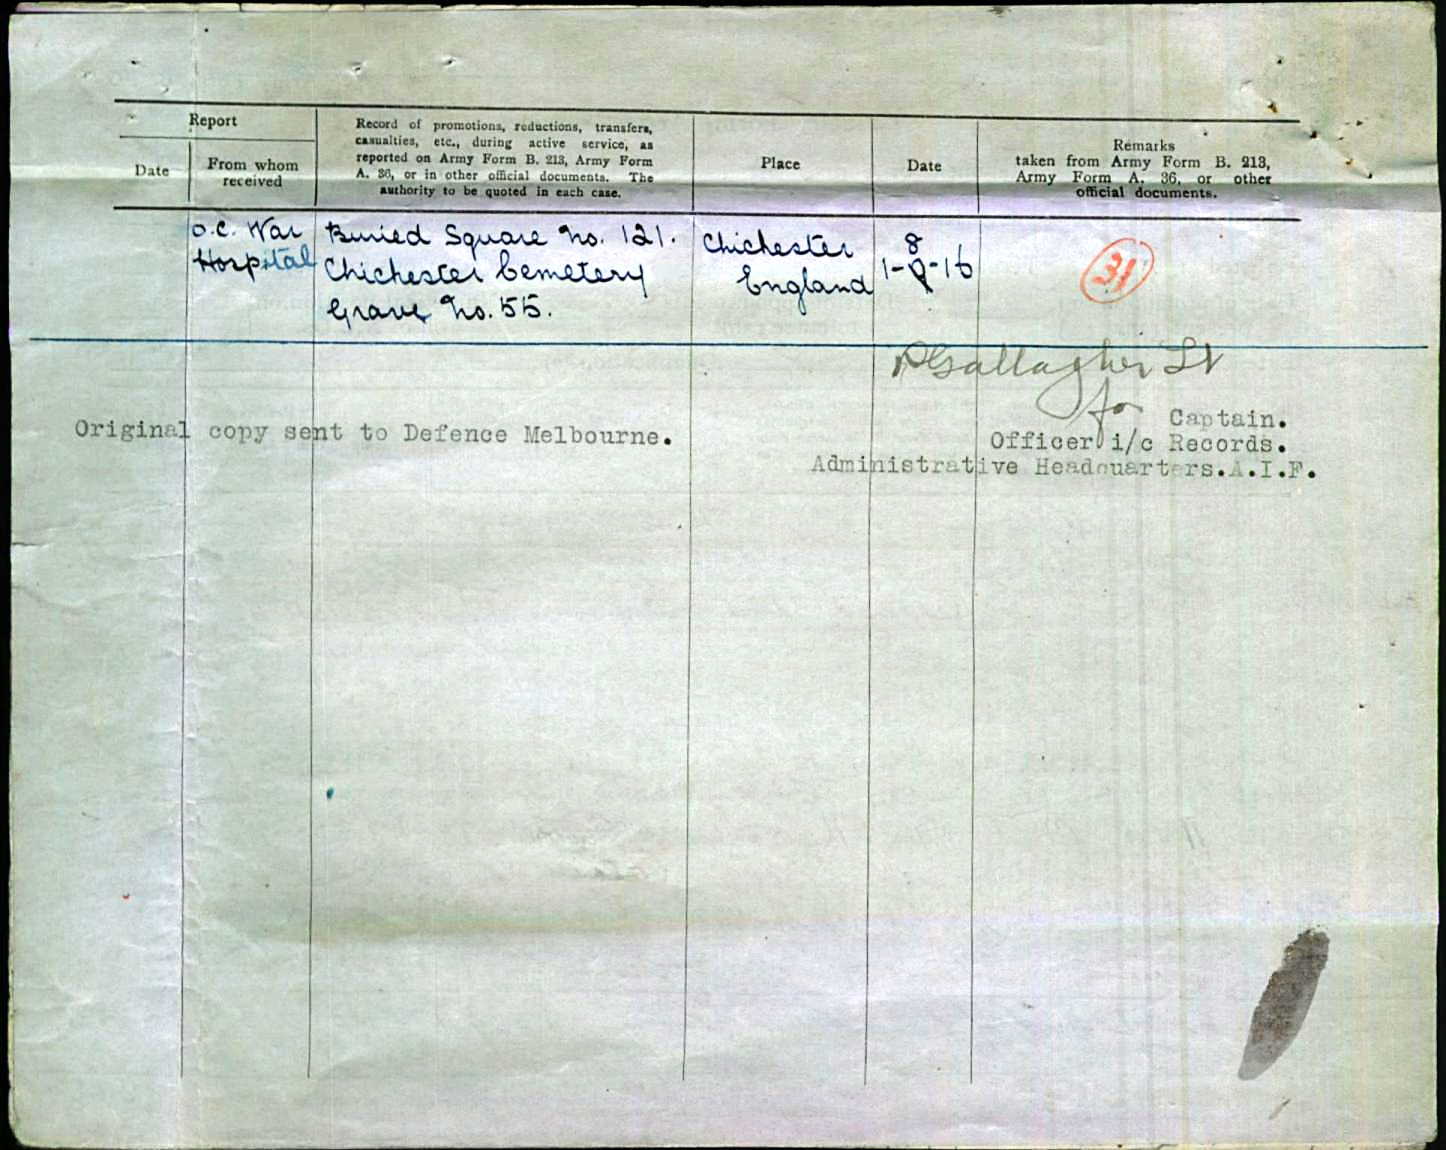 Report
Date
From whom
received
Record of promotions, reductions, transfers,
casualties, etc., during active service, as
reported on Army Form B. 213, Army Form
A. 36, or in other official documents. The
authority to be quoted in each case.
Place
Date
Remarks
taken from Army Form B. 213,
Army Form A. 36, or other
official documents.
O.C. War
Hospital
Buried Square No. 121.
Chichester Cemetery
Grave No. 55.
Chichester
England
8
1-9-16
31
PGallagher Lt
for Captain.
Original copy sent to Defence Melbourne.
Officer i/c Records.
Administrative Headquarters.A.I.F.